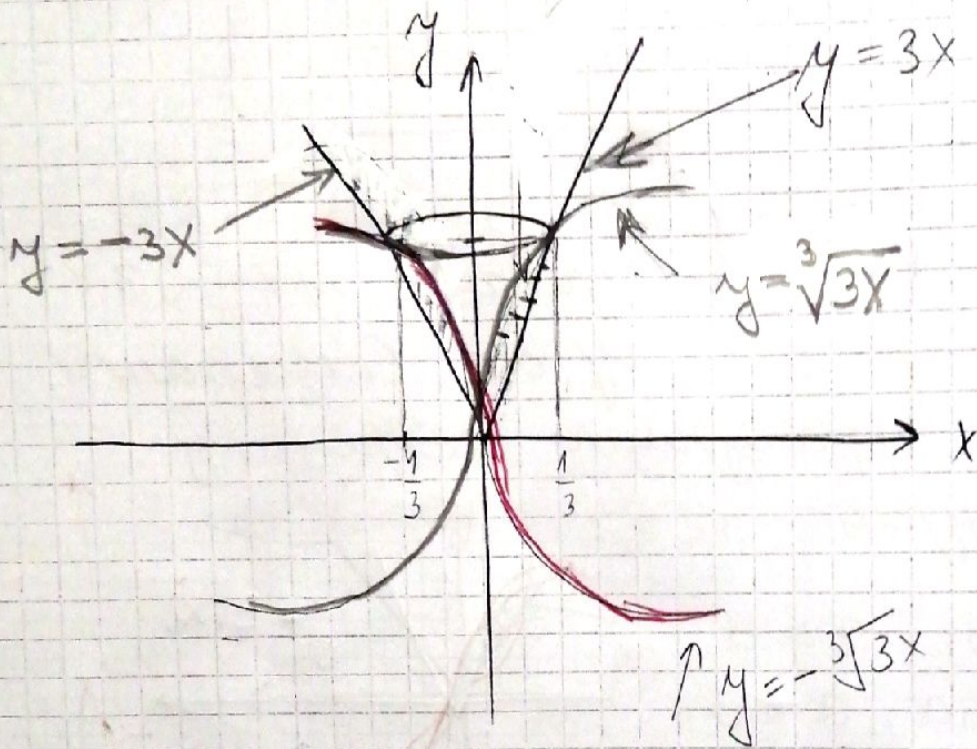 y
y = 3x
y = -3x
y = ∛3x
x
-1/3
1/3
y = -∛3x